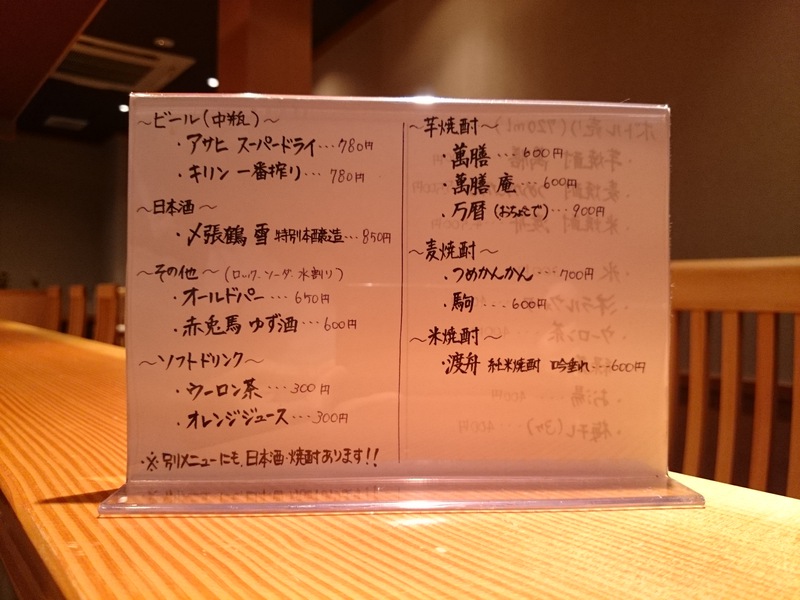 ～ビール(中瓶)～
・アサヒ スーパードライ･･･780円
・キリン 一番搾り･･･ 780円
～日本酒～
・〆張鶴 雪 特別本醸造･･･850円
～その他～(ロック、ソーダ、水割り)
・オールドパー･･･650円
・赤兎馬 ゆず酒･･･600円
～ソフトドリンク～
・ウーロン茶････300円
・オレンジジュース･･･300円
・※別メニューにも、日本酒・焼酎あります!!
～芋焼酎～
・萬膳･･･600円
・萬膳 庵 600円
・万暦(おちょこで)･･900円
～麦焼酎～
・つめかんかん････700円
・駒 ････600円
～米焼酎～
・渡舟 純米焼酎 吟垂れ･･･600円
ボトル売り(720ml)
・芋焼酎 萬膳
・麦焼酎
・米焼酎
・氷
・ウーロン茶
・お湯
・梅干し(3ヶ)･･･400円